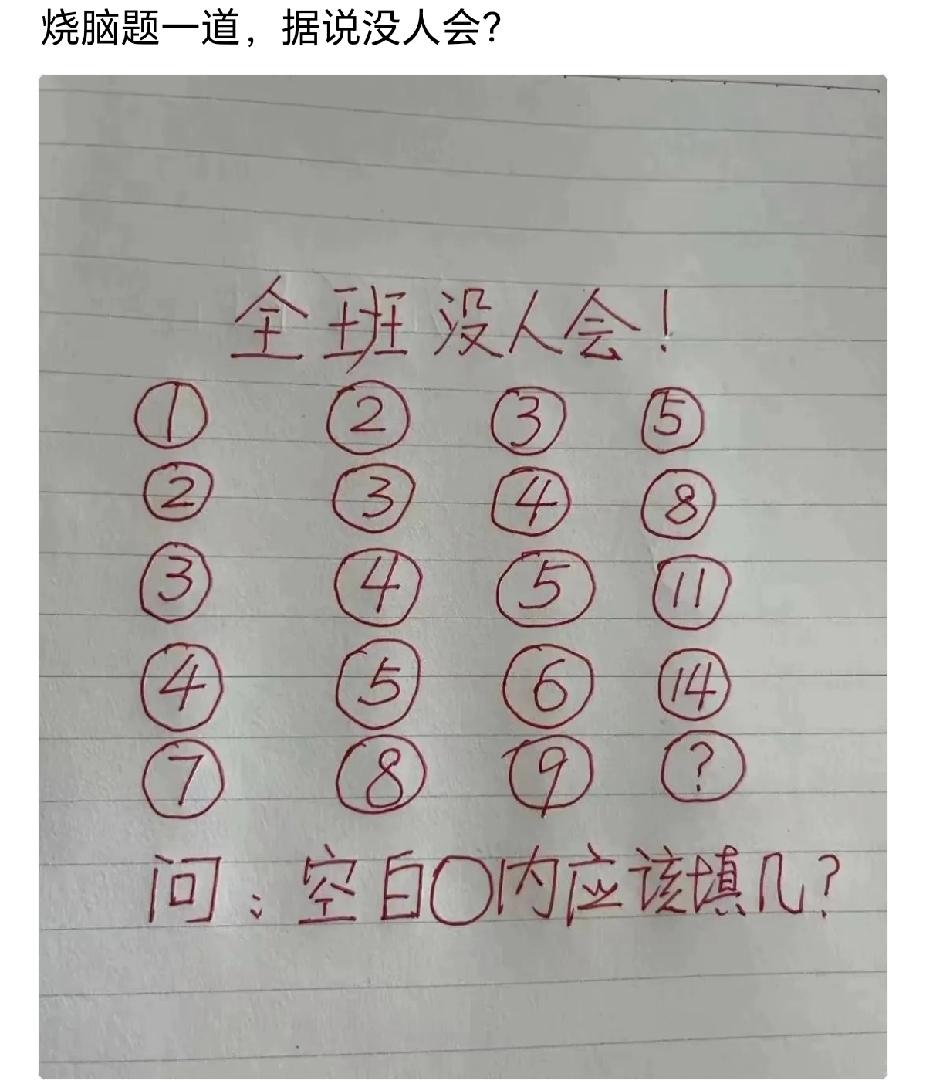 烧脑题一道，据说没人会？
全班没人会！
① ② ③ ⑤
② ③ ④ ⑧
③ ④ ⑤ ⑪
④ ⑤ ⑥ ⑭
⑦ ⑧ ⑨ ?
问：空白○内应该填几？